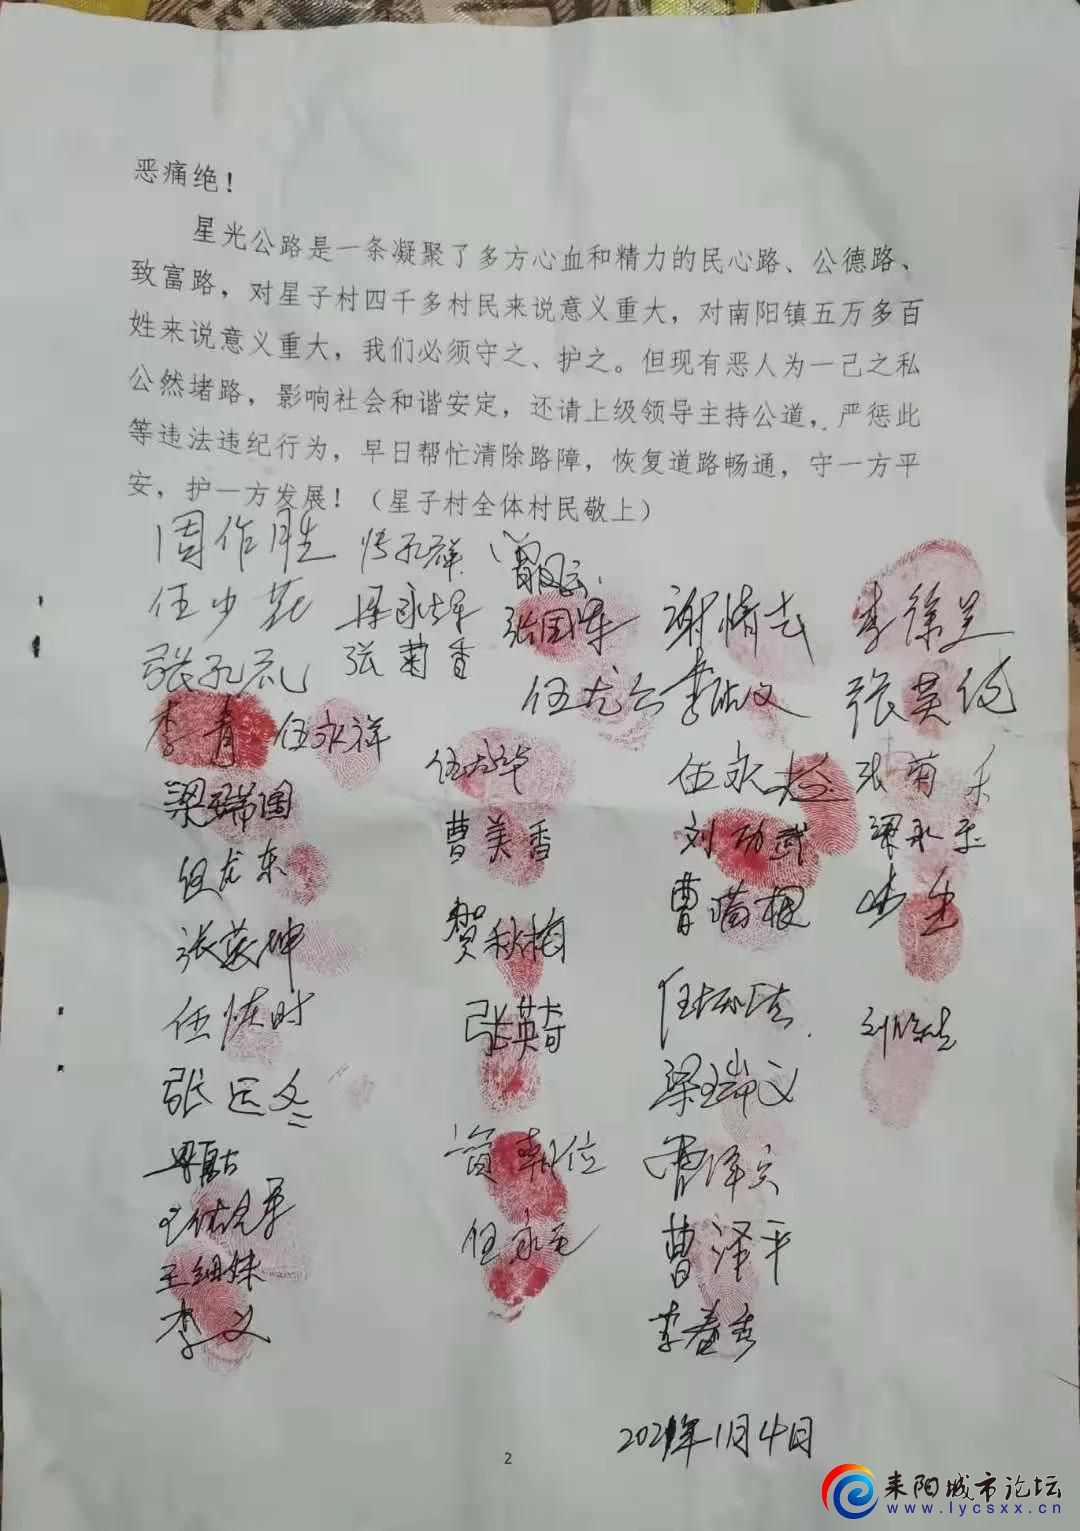 恶痛绝！
星光公路是一条凝聚了多方心血和精力的民心路、公德路、
致富路，对星子村四千多村民来说意义重大，对南阳镇五万多百
姓来说意义重大，我们必须守之、护之。但现有恶人为一己之私
公然堵路，影响社会和谐安定，还请上级领导主持公道，严惩此
等违法违纪行为，早日帮忙清除路障，恢复道路畅通，守一方平
安，护一方发展！（星子村全体村民敬上）
周作胜
张国华 谢清
张菊香
李青 伍永祥
张英
梁瑞国
曹美香
刘功武
伍龙东
贺秋梅
曹满根
张英坤
张英奇
梁瑞文
曹泽平
王细妹
李义
李春秀
2021年1月4日
2
耒阳城市论坛
www.lycsxx.cn